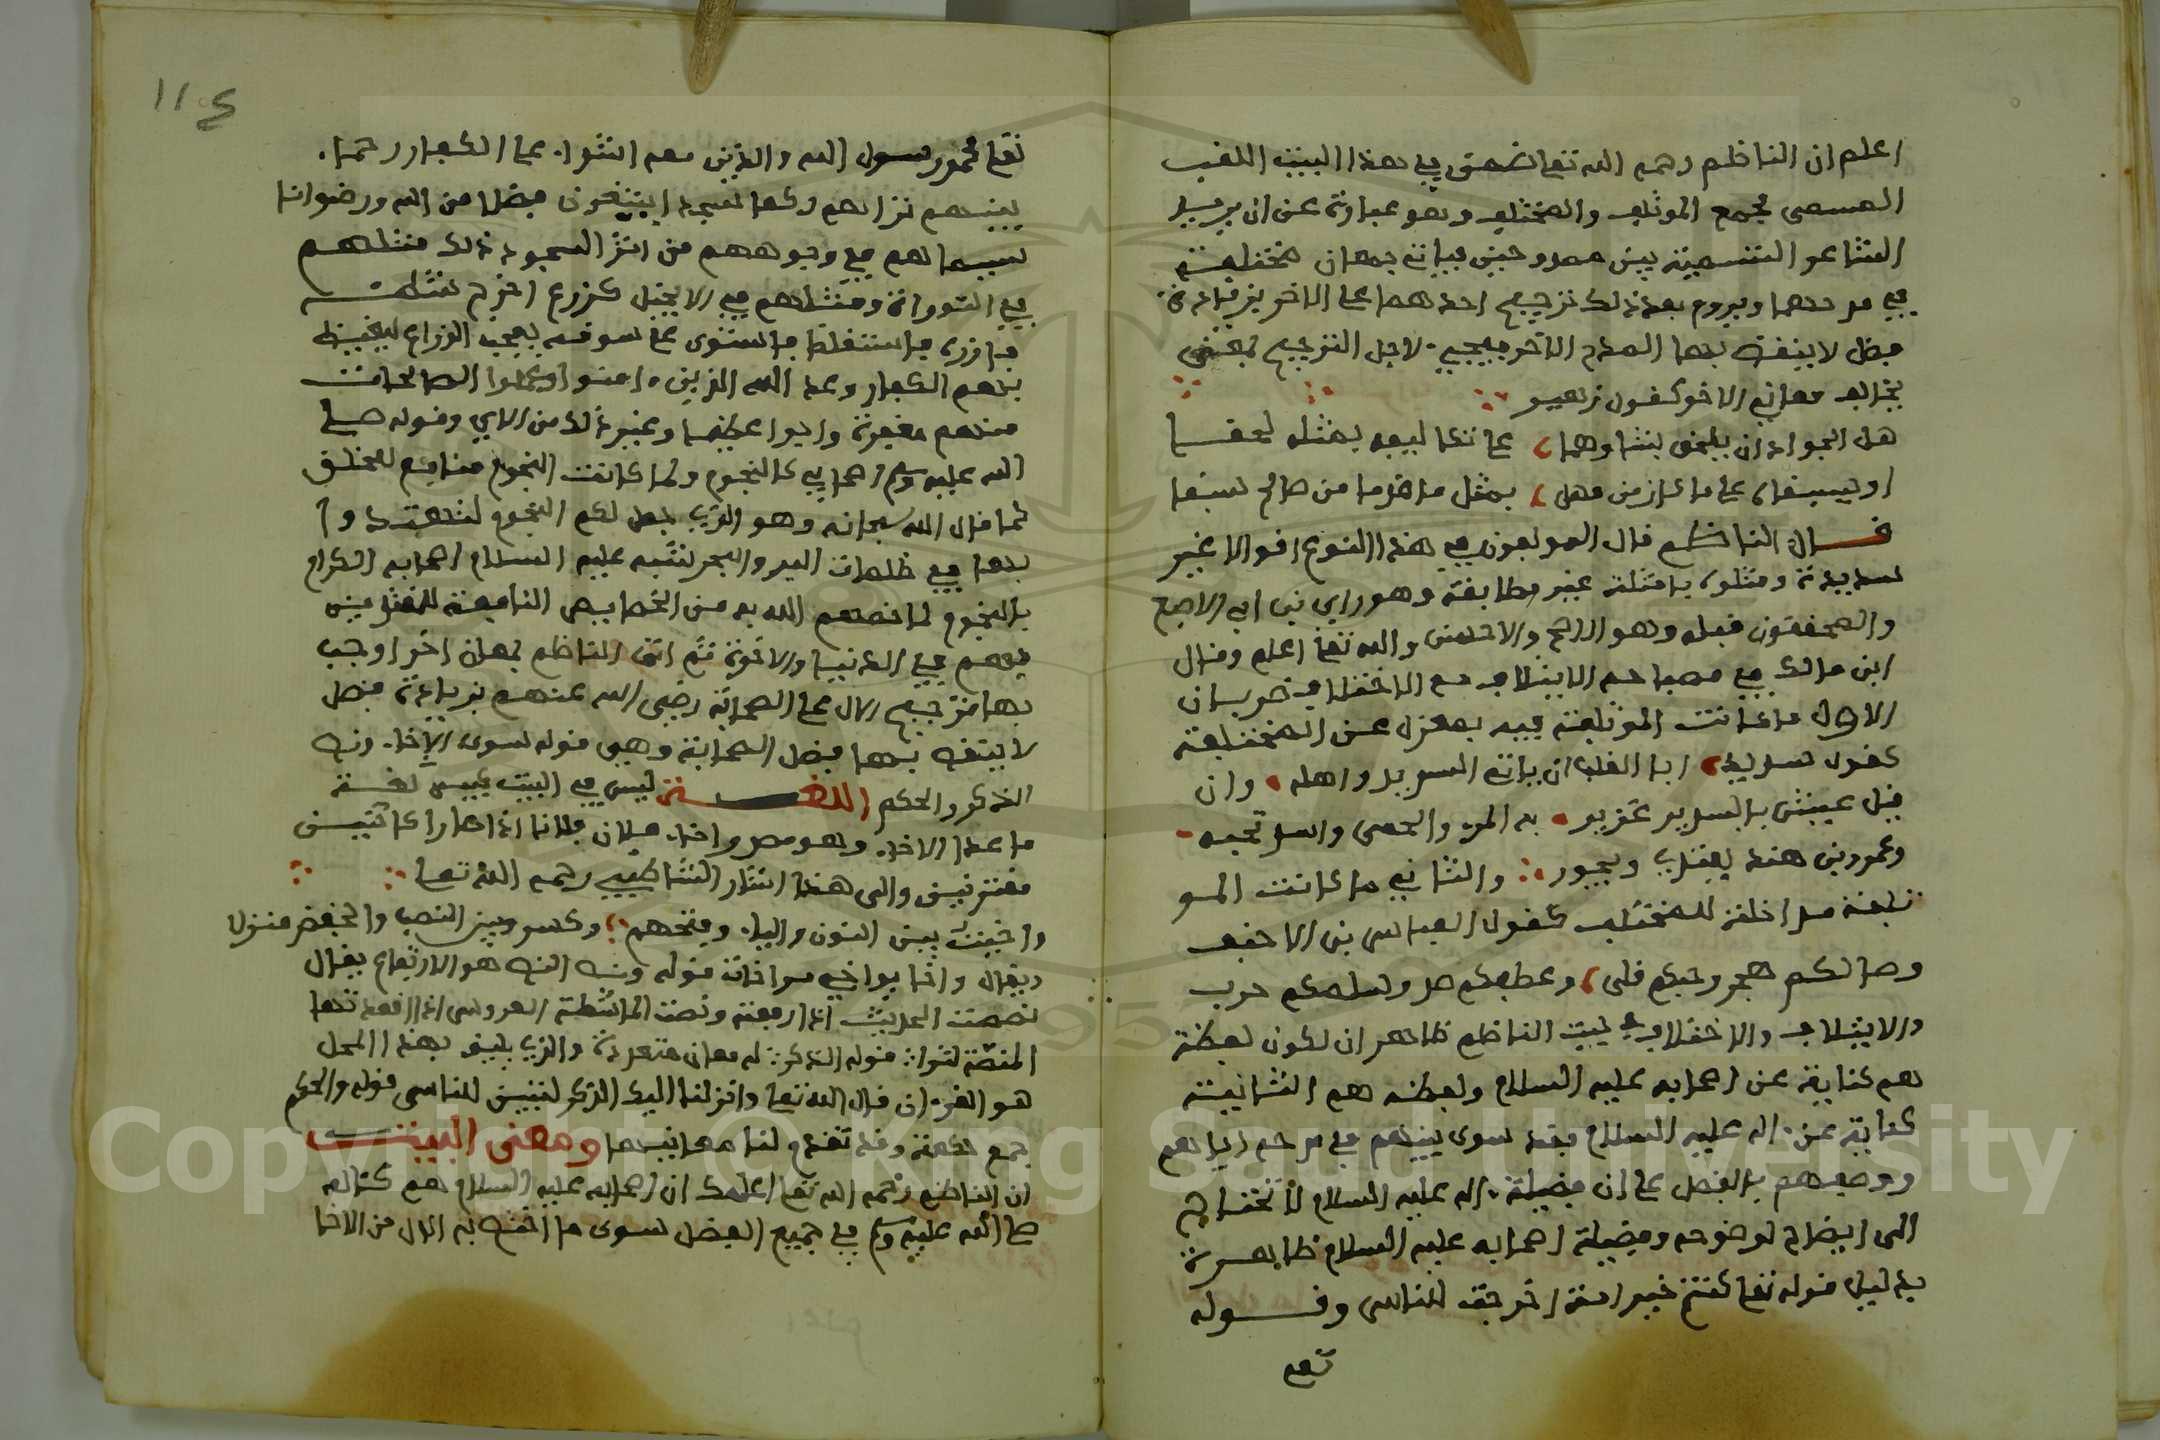 اعلم ان الناظم رحمه الله تعا نضمن في هذا البيت اللقب
المسمى بجمع الموتلف والمختلف وهو عبارة عن ان يريد
الشاعر التسوية بين ممدوحين فياتي بمعان مختلفة
في مدحهما ويروم بعد ذلك ترجيح احدهما على الاخر بزيادة
فضل لا ينقص بها المدح الاخر فيجي لاجل الترجيح بمعنى
يخالف معاني الاخر كقول زهير
هل الجواد ان يلحق بشاوهما على تكاليفه بمثله لحقا
او يسبقاه على ما كان من مهل بمثل ما قدما من صالح سبقا
قال الناظم قال المولفون في هذا النوع اقوالا غير
سديدة ومثلوه بامثلة غير مطابقة وهو راي بن ابي الاصبع
والمحققون قبله وهو الاصح والاحسن والله تعا اعلم وقال
ابن مالك في مصباحه الايتلاف مع الاختلاف ضربان
الاول ما كانت الموتلفة فيه بمعزل عن المختلفة
كقول ابا القلب ان ياتي السدير واهله وان
قيل عيش بالسدير غزير به البق والحمى واسد تحفه
وعمرو بن هند يعتدي ويجور والثاني ما كانت المو
تلفة مداخلة للمختلف كقول العباس بن الاحنف
وصالكم هجر وحبكم قلى وعطفكم صد وسلمكم حرب
والايتلاف والاختلاف في بيت الناظم ظاهر ان لكون لفظة
هم كناية عن اصحابه عليه السلام ولفظة هم الثانية
كناية عن اله عليه السلام فقد سوى بينهم في مدحه اياهم
ووصفهم بالفضل على ان فضيلة اله عليه السلام لا تحتاج
الى ايضاح لوضوحه وفضيلة اصحابه عليه السلام ظاهرة
بدليل قوله تعا كنتم خير امة اخرجت للناس وقوله
تعا
١١٤
تعا محمد رسول الله والذين معه اشداء على الكفار رحماء
بينهم تراهم ركعا سجدا يبتغون فضلا من الله ورضوانا
سيماهم في وجوههم من اثر السجود ذلك مثلهم
في التوراة ومثلهم في الانجيل كزرع اخرج شطئه
فازره فاستغلظ فاستوى على سوقه يعجب الزراع ليغيظ
بهم الكفار وعد الله الذين ءامنوا وعملوا الصالحات
منهم مغفرة واجرا عظيما وغير ذلك من الاي وقوله صلى
الله عليه وسلم اصحابي كالنجوم ولما كانت النجوم منافع للخلق
كما قال الله سبحانه وهو الذي جعل لكم النجوم لتهتدوا
بها في ظلمات البر والبحر شبه عليه السلام اصحابه الكرام
بالنجوم لما خصهم الله به من الخصايص النافعة للمقتدين
بهم في الدنيا والاخرة ثم اتى الناظم بمعان اخر اوجب
بها ترجيح الال على الصحابة رضي الله عنهم بزيادة فضل
لا ينقص بها فضل الصحابة وهي قوله سوى الاخاء ونص
الذكر والحكم اللغة ليس في البيت كبير لغة
ما عدا الاخاء وهو مصدر واخاء فلان فلانا اذا صارا كاخيين
مقترنين والى هذا اشار الشاطبي رحمه الله تعا
واخيت بين النون واليا وفتحهم وكسر وبين النصب والخفض منزلا
ويقال واخا يواخي مواخاة قوله ونص النص هو الارتفاع يقال
نصصت الحديث اذا رفعته ونصت الماشطة العروس اذا اقعدتها
المنصة لترا قوله الذكر له معان متعددة والذي يليق بهذا المحل
هو القرءان قال الله تعا وانزلنا اليك الذكر لتبين للناس قوله والحكم
جمع حكمة وقد تقدم لنا معانيها ومعنى البيت
ان الناظم رحمه الله تعا اعلمك ان اصحابه عليه السلام هم كئاله
صلى الله عليه وسلم في جميع الفضل سوى ما اختص به الال من الاخا
Copyright © King Saud University
1957